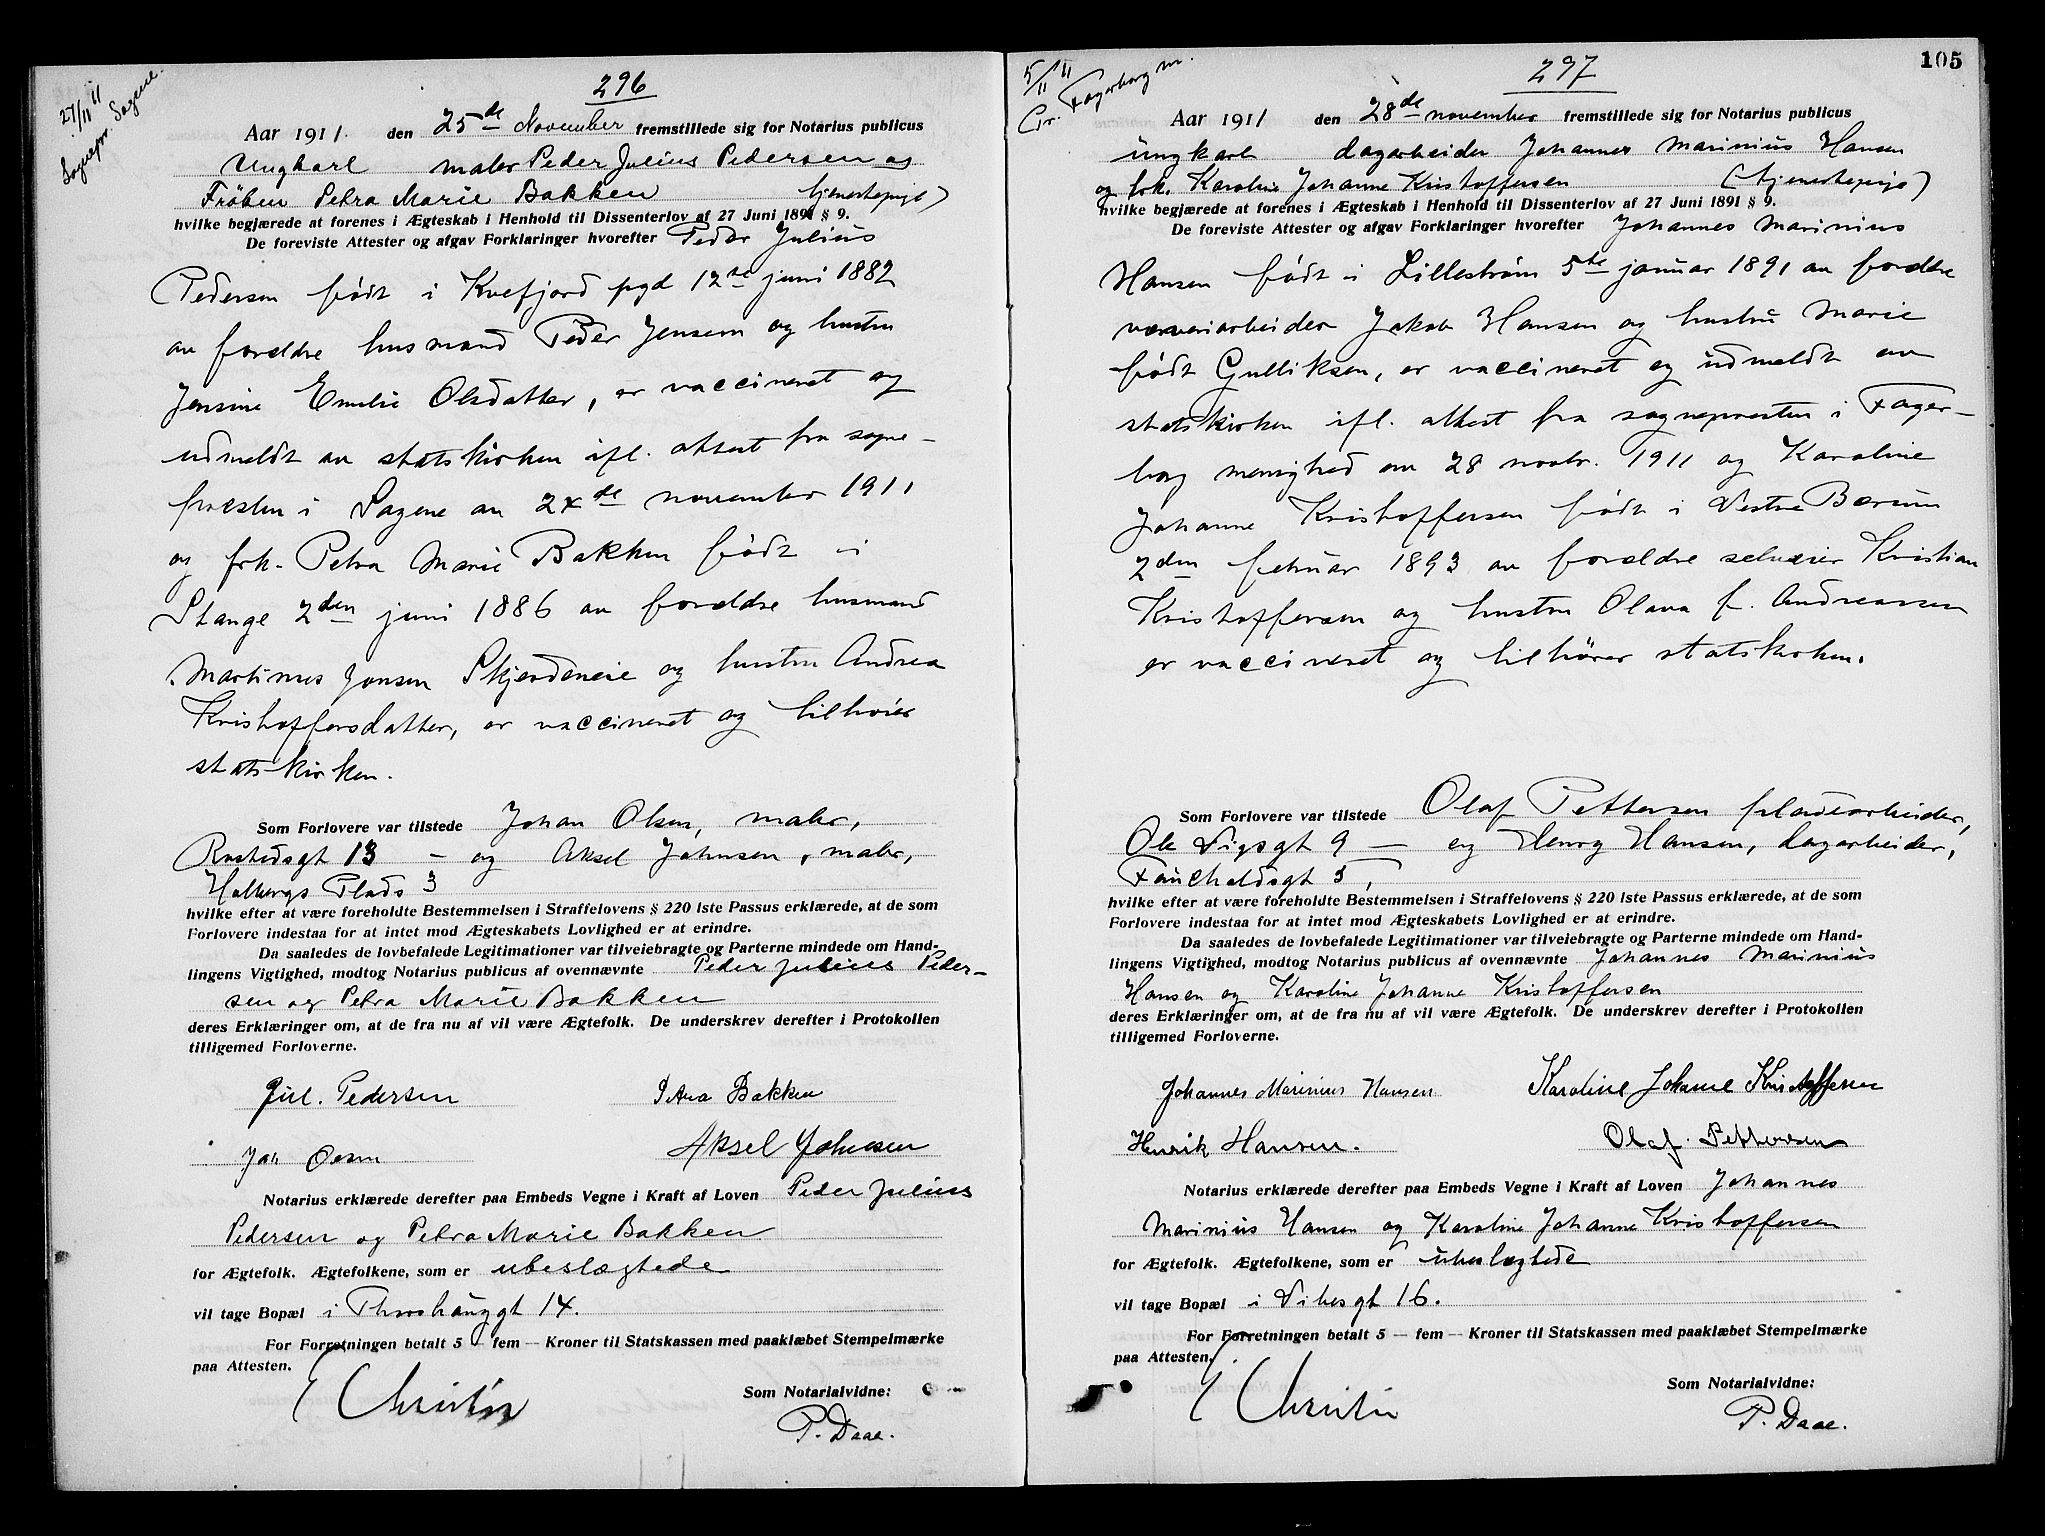 27/11 11
Sognepr. Sagene.
296
Aar 1911. den 25de November fremstillede sig for Notarius publicus
Ungkarl maler Peder Julius Pedersen og
Fröken Petra Marie Bakken tjenestepige)
hvilke begjærede at forenes i Ægteskab i Henhold til Dissenterlov af 27 Juni 1891 § 9.
De foreviste Attester og afgav Forklaringer hvorefter Peder Julius
Pedersen født i Kvefjord pgd 12te juni 1882
av forældre husmand Peder Jensen og hustru
Jensine Emelie Olsdatter, er vaccineret og
udmeldt av statskirken ifl. attest fra sogne-
præsten i Sagene av 24de november 1911
og frk. Petra Marie Bakken født i
Stange 2den juni 1886 av forældre husmand
Martinus Jonsen Skjerdeneie og hustru Andrea
Kristoffersdatter, er vaccineret og tilhører
statskirken.
Som Forlovere var tilstede Johan Olsen, maler,
Rostedsgt 13 – og Aksel Johnsen, maler,
Holbergs Plads 3
hvilke efter at være foreholdte Bestemmelsen i Straffelovens § 220 1ste Passus erklærede, at de som
Forlovere indestaa for at intet mod Ægteskabets Lovlighed er at erindre.
Da saaledes de lovbefalede Legitimationer var tilveiebragte og Parterne mindede om Hand-
lingens Vigtighed, modtog Notarius publicus af ovennævnte Peder Julius Peder-
sen og Petra Marie Bakken
deres Erklæringer om, at de fra nu af vil være Ægtefolk. De underskrev derefter i Protokollen
tilligemed Forloverne.
Jul. Pedersen Petra Bakken
Joh Olsen Aksel Johnsen
Notarius erklærede derefter paa Embeds Vegne i Kraft af Loven Peder Julius
Pedersen og Petra Marie Bakken
for Ægtefolk. Ægtefolkene, som er ubeslægtede
vil tage Bopæl i Throndhauggt 14.
For Forretningen betalt 5 – fem – Kroner til Statskassen med paaklæbet Stempelmærke
paa Attesten.
Som Notarialvidne:
P. Daae.
5/11 11
Gr. Fagerborg m.
297
105
Aar 1911 den 28de november fremstillede sig for Notarius publicus
ungkarl dagarbeider Johannes Marinius Hansen
og frk. Karoline Johanne Kristoffersen (tjenestepige)
hvilke begjærede at forenes i Ægteskab i Henhold til Dissenterlov af 27 Juni 1891 § 9.
De foreviste Attester og afgav Forklaringer hvorefter Johannes Marinius
Hansen født i Lillestrøm 5te januar 1891 av forældre
værveriarbeider Jakob Hansen og hustru Marie
født Gulliksen, er vaccineret og udmeldt av
statskirken ifl. attest fra sognepresten i Fager-
borg menighed av 28 novbr. 1911 og Karoline
Johanne Kristoffersen født i Vestre Bærum
2den februar 1893 av forældre selveier Kristian
Kristoffersen og hustru Olava f. Andreassen
er vaccineret og tilhører statskirken.
Som Forlovere var tilstede Olaf Pettersen pladearbeider,
Ole Vigsgt 9 – og Henry Hansen, dagarbeider,
Faucheldsgt 5,
hvilke efter at være foreholdte Bestemmelsen i Straffelovens § 220 1ste Passus erklærede, at de som
Forlovere indestaa for at intet mod Ægteskabets Lovlighed er at erindre.
Da saaledes de lovbefalede Legitimationer var tilveiebragte og Parterne mindede om Hand-
lingens Vigtighed, modtog Notarius publicus af ovennævnte Johannes Marinius
Hansen og Karoline Johanne Kristoffersen
deres Erklæringer om, at de fra nu af vil være Ægtefolk. De underskrev derefter i Protokollen
tilligemed Forloverne.
Johannes Marinius Hansen Karoline Johanne Kristoffersen
Henrik Hansen. Olaf Pettersen
Notarius erklærede derefter paa Embeds Vegne i Kraft af Loven Johannes
Marinius Hansen og Karoline Johanne Kristoffersen
for Ægtefolk. Ægtefolkene, som er ubeslægtede
vil tage Bopæl i Vibesgt 16.
For Forretningen betalt 5 – fem – Kroner til Statskassen med paaklæbet Stempelmærke
paa Attesten.
Som Notarialvidne:
P. Daae.